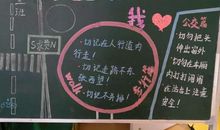 班
S求赞N
我
walk
步行篇
·切记在人行道内
行走！
·切记走路不东
张西望！
·切记不奔跑！
公交篇
·切勿把头
伸出窗外
·切勿在车厢
内打打闹闹
在站台上注意
安全！